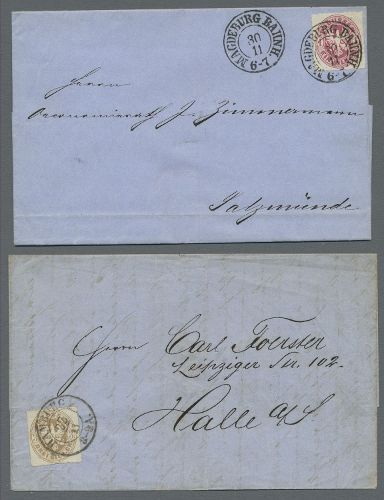 MAGDEBURG BAHNH
30
11
6-7
MAGDEBURG BAHNH
30
11
6-7
Herrn
Oeconomierath J. Zimmermann
Salzmünde
Herrn Carl Foerster
Leipziger Str. 102.
Halle a/S